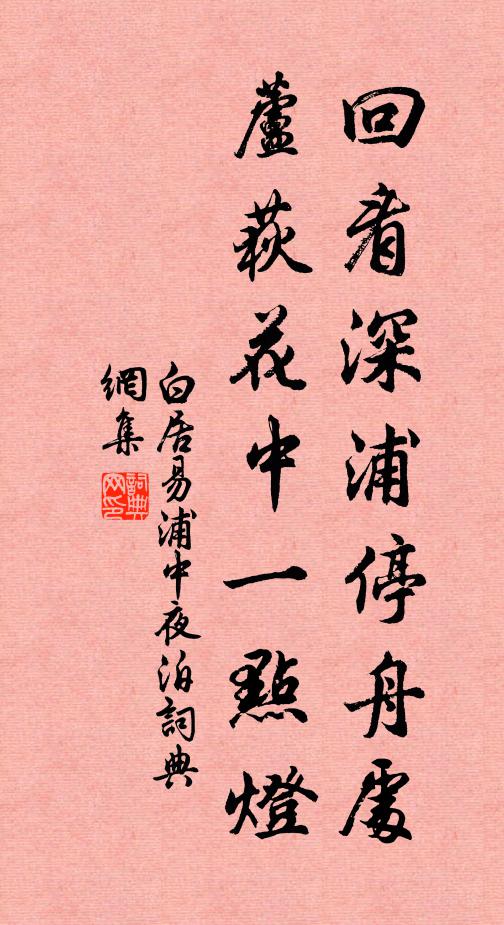 回看深浦停舟處
蘆荻花中一點燈
白居易浦中夜泊詞典
網集
詞典
网印